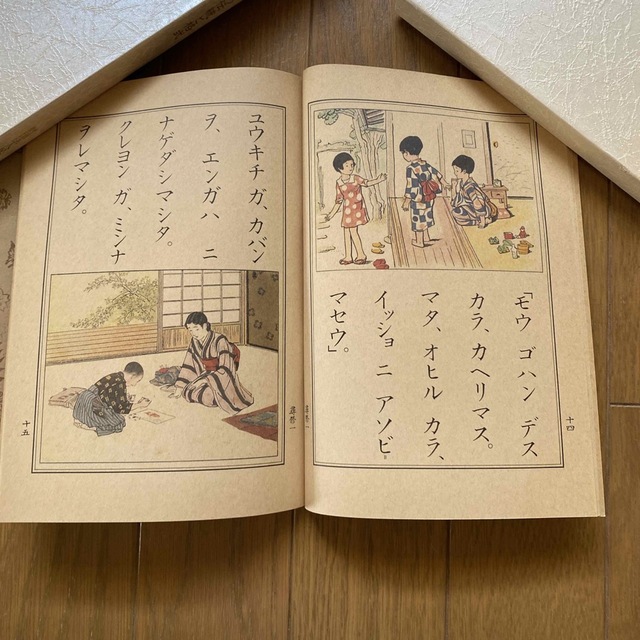 「モウ ゴハン デス
カラ、カヘリマス。
マタ、オヒル カラ、
イッショ ニ アソビ
マセウ」。
十四
ユウキチ ガ、カバン
ヲ、エンガハ ニ
ナゲダシマシタ。
クレヨン ガ、ミンナ
ヲレマシタ。
十五